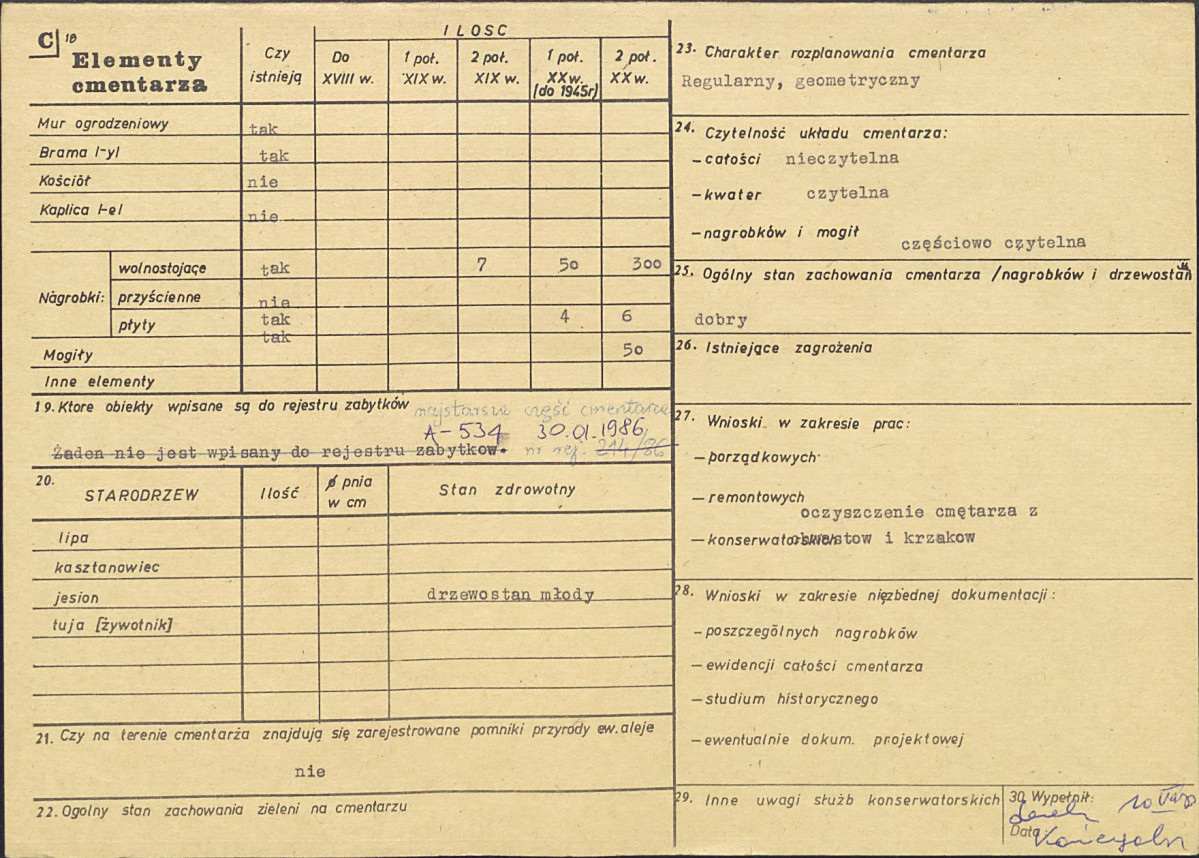 C 18
Elementy cmentarza
Czy istnieją
ILOSC
Do XVIII w.
1 poł. XIX w.
2 poł. XIX w.
1 poł. XX w. (do 1945r)
2 poł. XX w.
Mur ogrodzeniowy tak
Brama l-yl tak
Kościół nie
Kaplica l-el nie
Nagrobki:
wolnostojące tak 7 50 300
przyścienne nie
płyty tak 4 6
Mogiły tak 50
Inne elementy
19. Ktore obiekty wpisane są do rejestru zabytków najstarsza część cmentarza
A-534 30.01.1986
Żaden nie jest wpisany do rejestru zabytkow. nr rej. 214/86
20. STARODRZEW Ilość ø pnia w cm Stan zdrowotny
lipa
kasztanowiec
jesion drzewostan młody
tuja [żywotnik]
21. Czy na terenie cmentarza znajdują się zarejestrowane pomniki przyrody ew. aleje
nie
22. Ogolny stan zachowania zieleni na cmentarzu
23. Charakter rozplanowania cmentarza
Regularny, geometryczny
24. Czytelność układu cmentarza:
– całości nieczytelna
– kwater czytelna
– nagrobków i mogił częściowo czytelna
25. Ogólny stan zachowania cmentarza /nagrobków i drzewostan
dobry
26. Istniejące zagrożenia
27. Wnioski w zakresie prac:
– porządkowych
– remontowych
oczyszczenie cmętarza z
– konserwatorskich chwastow i krzakow
28. Wnioski w zakresie nięzbednej dokumentacji:
– poszczególnych nagrobków
– ewidencji całości cmentarza
– studium historycznego
– ewentualnie dokum. projektowej
29. Inne uwagi służb konserwatorskich
30. Wypełnił:
Data: